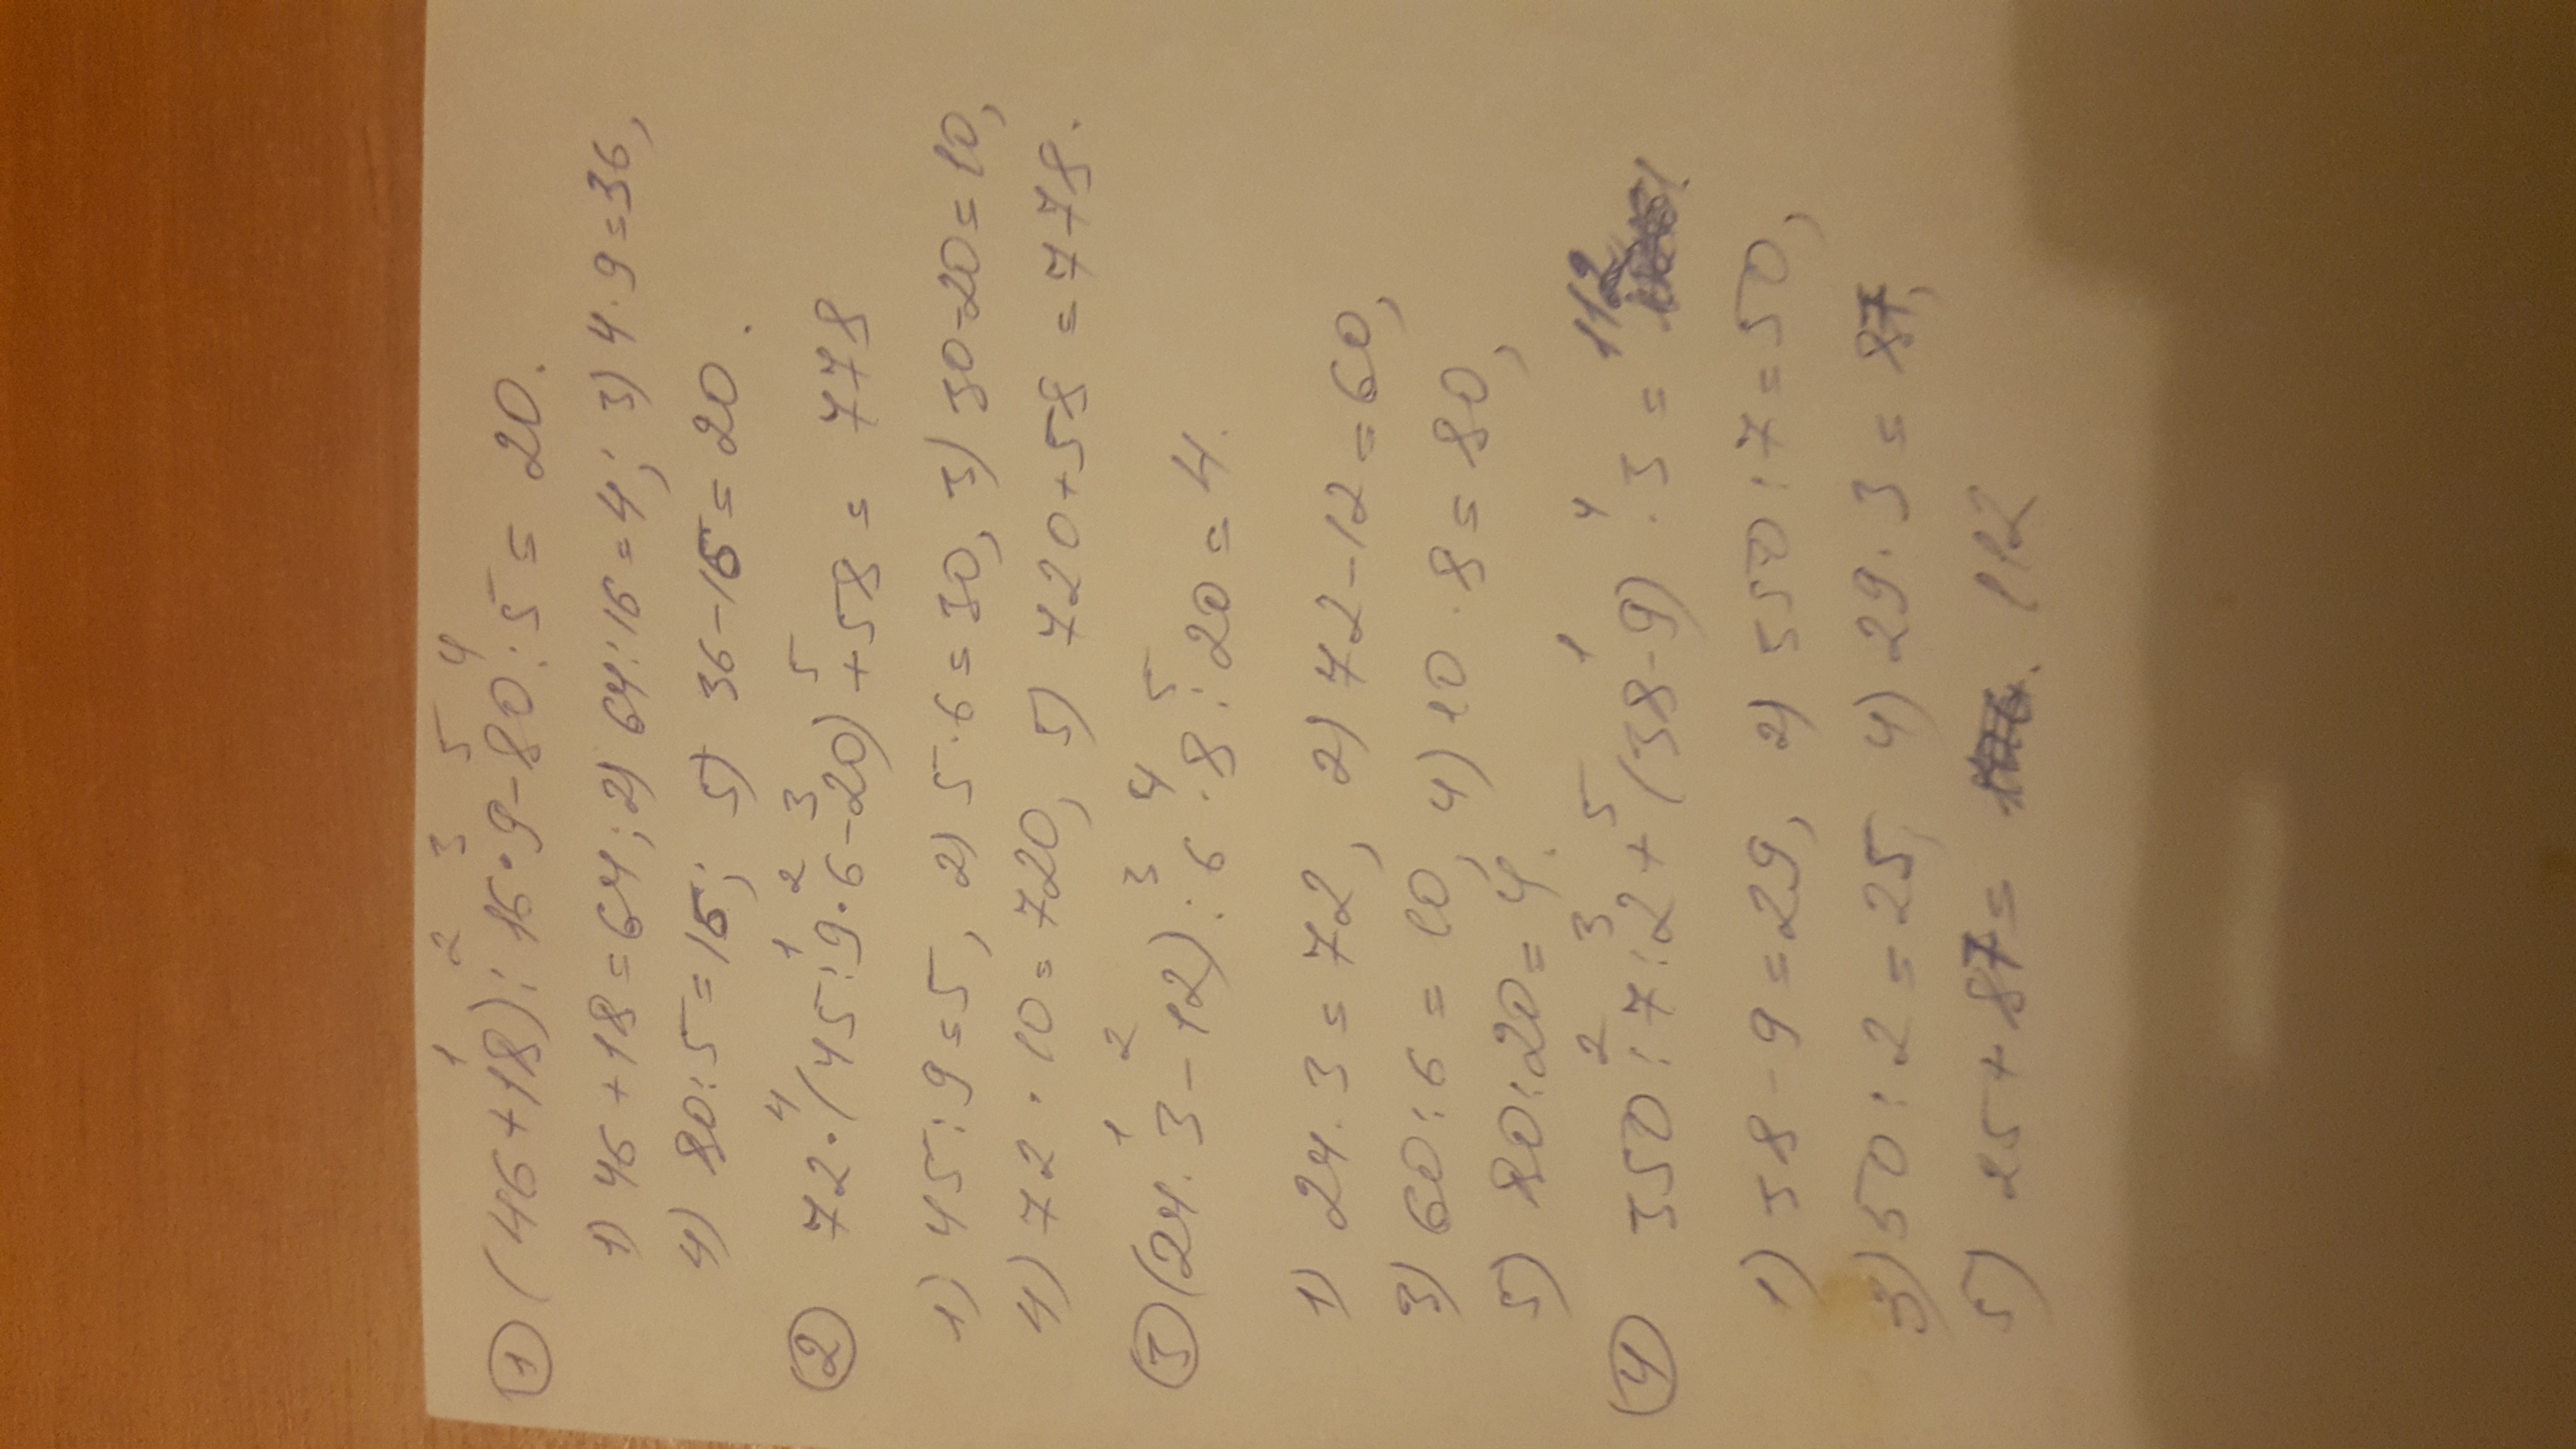 1 2 3 5 4
① (46+18):16·9-80:5=20.
1) 46+18=64; 2) 64:16=4; 3) 4·9=36,
4) 80:5=16; 5) 36-16=20.
4 1 2 3 5
② 72·(45:9·6-20)+58=778
1) 45:9=5, 2) 5·6=30, 3) 30-20=10,
4) 72·10=720, 5) 720+58=778.
1 2 3 4 5
③ (24·3-12):6·8:20=4.
1) 24·3=72, 2) 72-12=60,
3) 60:6=10, 4) 10·8=80,
5) 80:20=4.
2 3 5 1 4
④ 350:7:2+(38-9)·3=112
1) 38-9=29, 2) 550:7=50,
3) 50:2=25, 4) 29·3=87,
5) 25+87= . 112